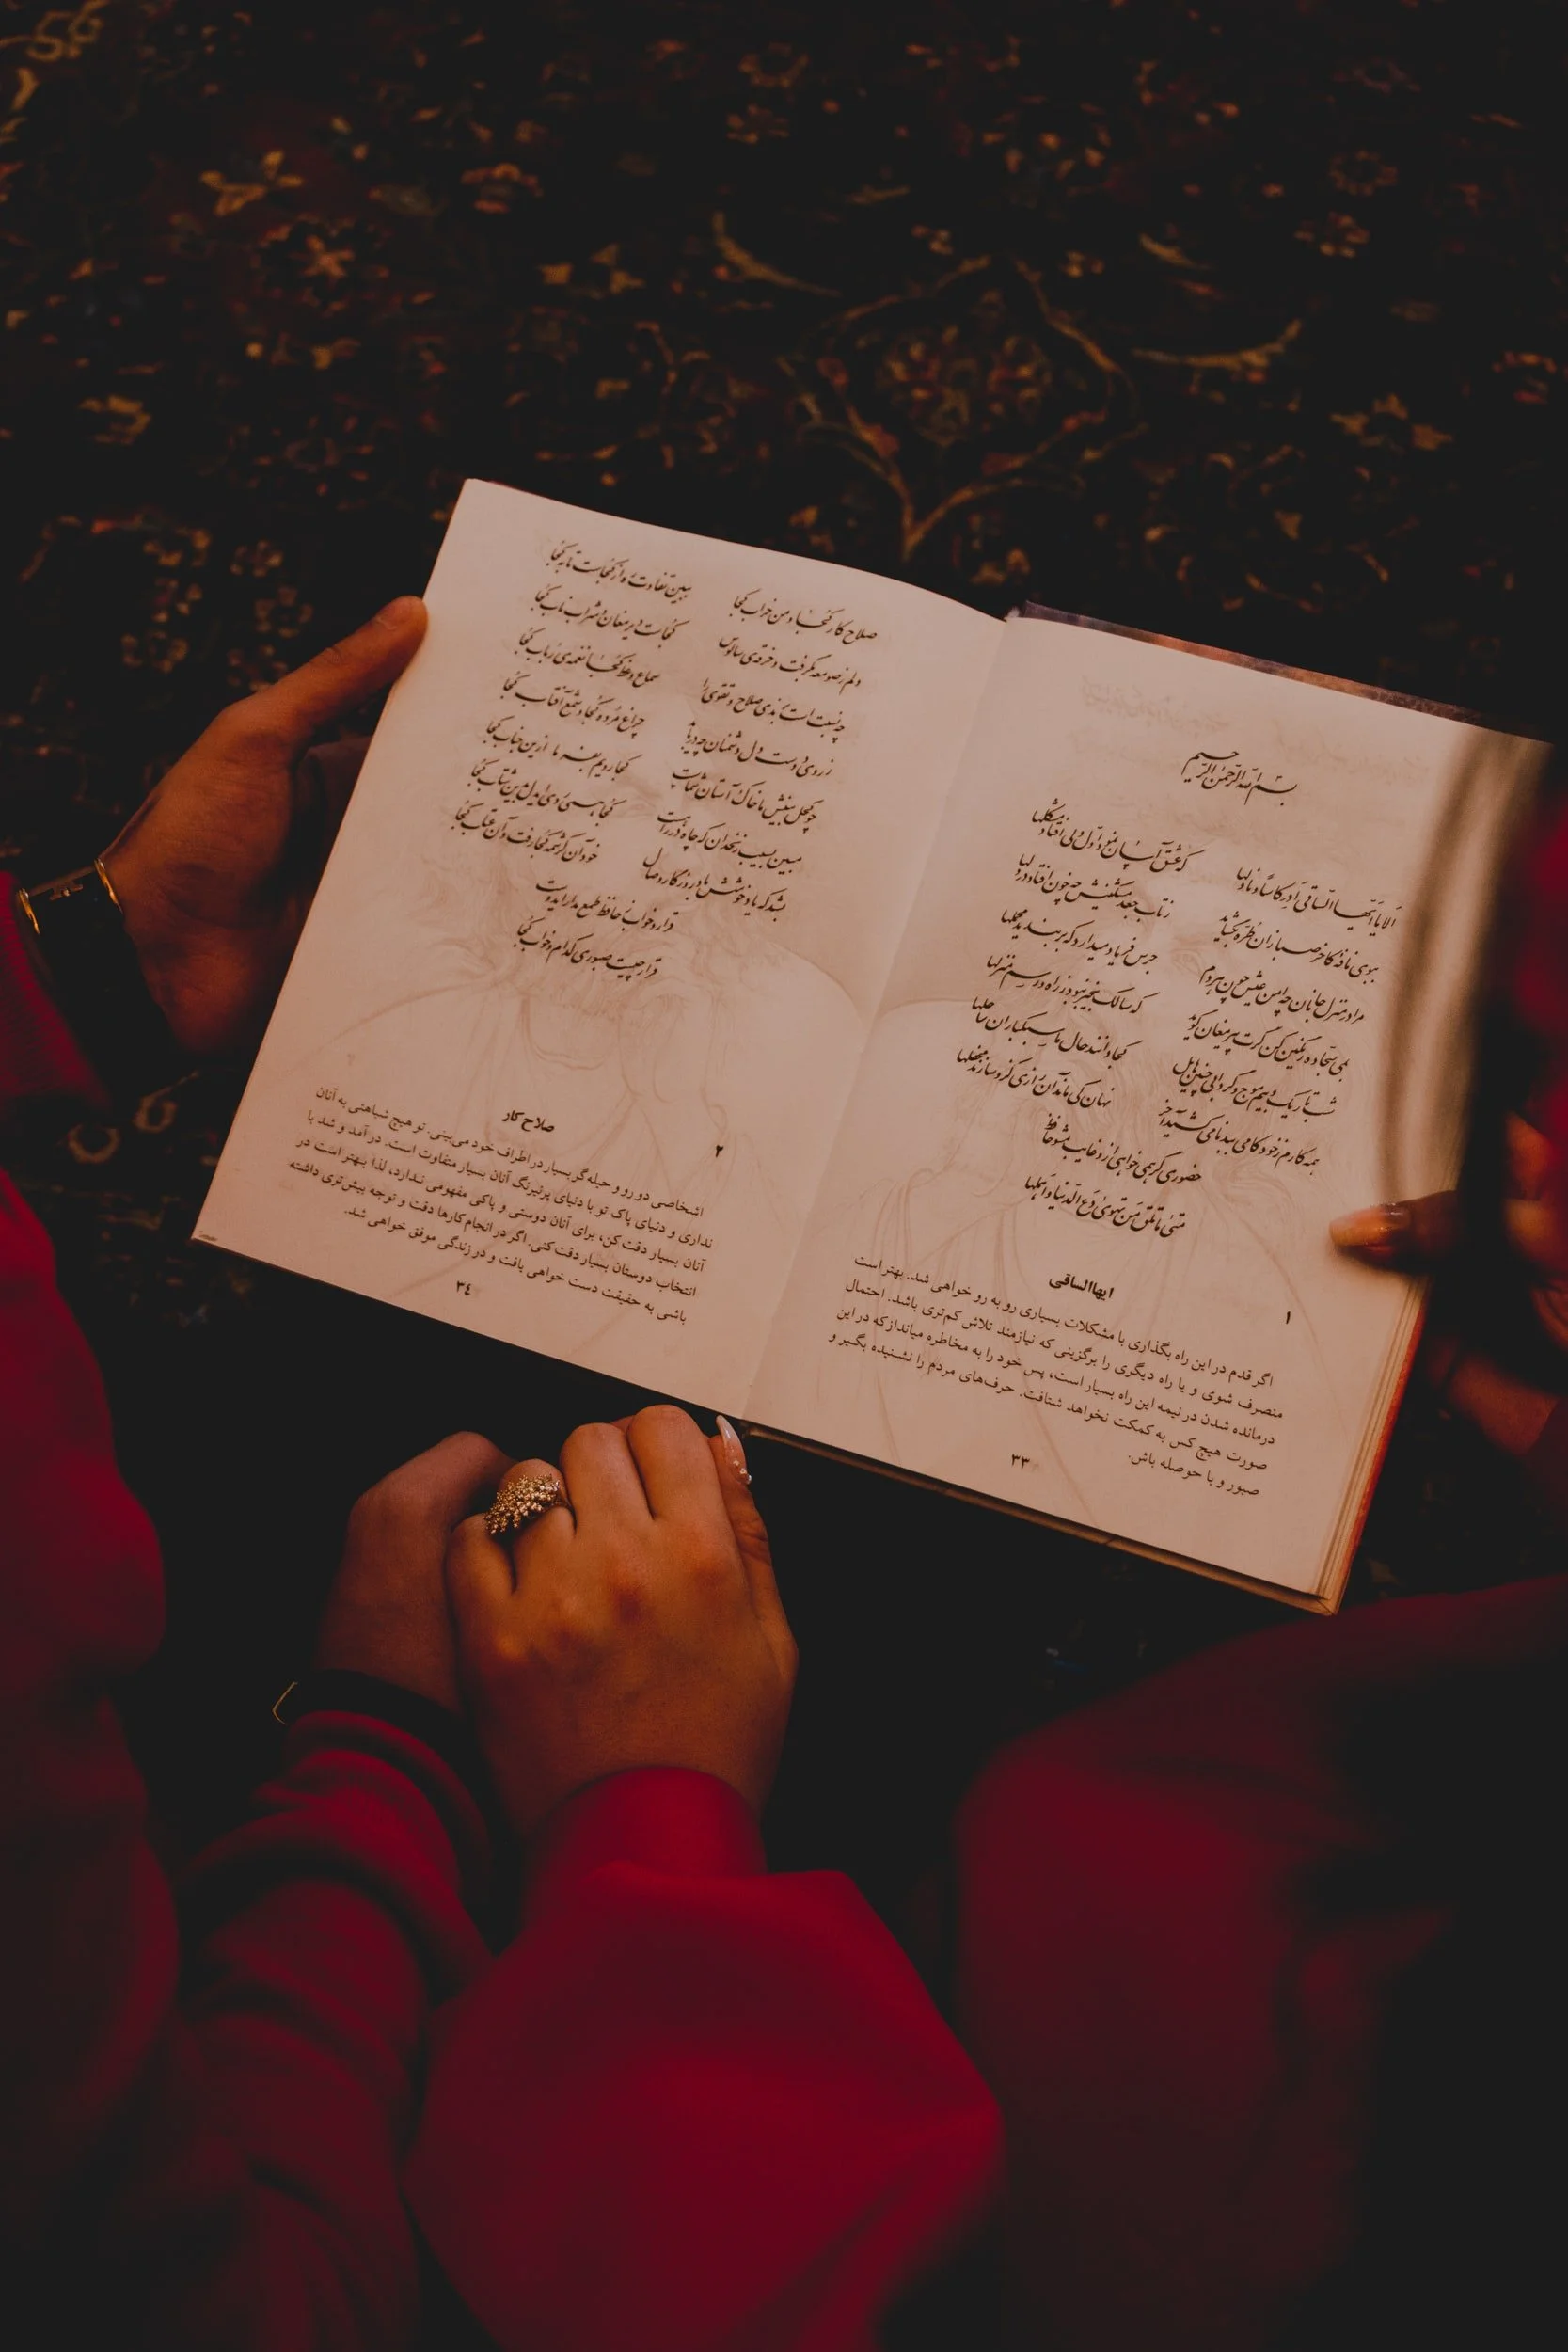 بسم الله الرحمن الرحیم
اَلا یا اَیُّها السّاقی اَدِر کاساً و ناوِلها که عشق آسان نمود اوّل ولی افتاد مشکلها
ببوی نافهٔ کاخر صبا زان طرّه بگشاید ز تاب جعد مشکینش چه خون افتاد در دلها
مرا در منزل جانان چه امن عیش چون هر دم جرس فریاد میدارد که بربندید محملها
بمی سجّاده رنگین کن گرت پیر مغان گوید که سالک بیخبر نبود ز راه و رسم منزلها
شب تاریک و بیم موج و گردابی چنین هایل کجا دانند حال ما سبکباران ساحلها
همه کارم ز خود کامی ببدنامی کشید آخر نهان کی ماند آن رازی کزو سازند محفلها
حضوری گر همی خواهی ازو غایب مشو حافظ
مَتیٰ ما تَلقَ مَن تَهویٰ دَعِ الدّنیا وَ اَهمِلها
ایهاالساقی
۱
اگر قدم در این راه بگذاری با مشکلات بسیاری رو به رو خواهی شد. بهتر است
منصرف شوی و یا راه دیگری را برگزینی که نیازمند تلاش کم‌تری باشد. احتمال
درمانده شدن در نیمه این راه بسیار است، پس خود را به مخاطره مینداز که در این
صورت هیچ کس به کمکت نخواهد شتافت. حرف‌های مردم را نشنیده بگیر و
صبور و با حوصله باش.
۳۳
صلاح کار کجا و من خراب کجا ببین تفاوت ره از کجاست تا به کجا
دلم ز صومعه بگرفت و خرقه‌ی سالوس کجاست دیر مغان و شراب ناب کجا
چه نسبت است برندی صلاح و تقوی را سماع وعظ کجا نغمه‌ی رباب کجا
ز روی دوست دل دشمنان چه دریابد چراغ مرده کجا و شمع آفتاب کجا
چو کحل بینش ما خاک آستان شماست کجا رویم بفرما ازین جناب کجا
مبین بسیب زنخدان که چاه در راهست کجا همی روی ای دل بدین شتاب کجا
بشد که یاد خوشش باد روزگار وصال خود آن کرشمه کجا رفت و آن عتاب کجا
قرار و خواب ز حافظ طمع مدار ای دوست
قرار چیست صبوری کدام و خواب کجا
صلاح کار
۲
اشخاصی دو رو و حیله گر بسیار در اطراف خود می‌بینی. تو هیچ شباهتی به آنان
نداری و دنیای پاک تو با دنیای پرنیرنگ آنان بسیار متفاوت است. در آمد و شد با
آنان بسیار دقت کن، برای آنان دوستی و پاکی مفهومی ندارد، لذا بهتر است در
انتخاب دوستان بسیار دقت کنی. اگر در انجام کارها دقت و توجه بیش‌تری داشته
باشی به حقیقت دست خواهی یافت و در زندگی موفق خواهی شد.
۳٤